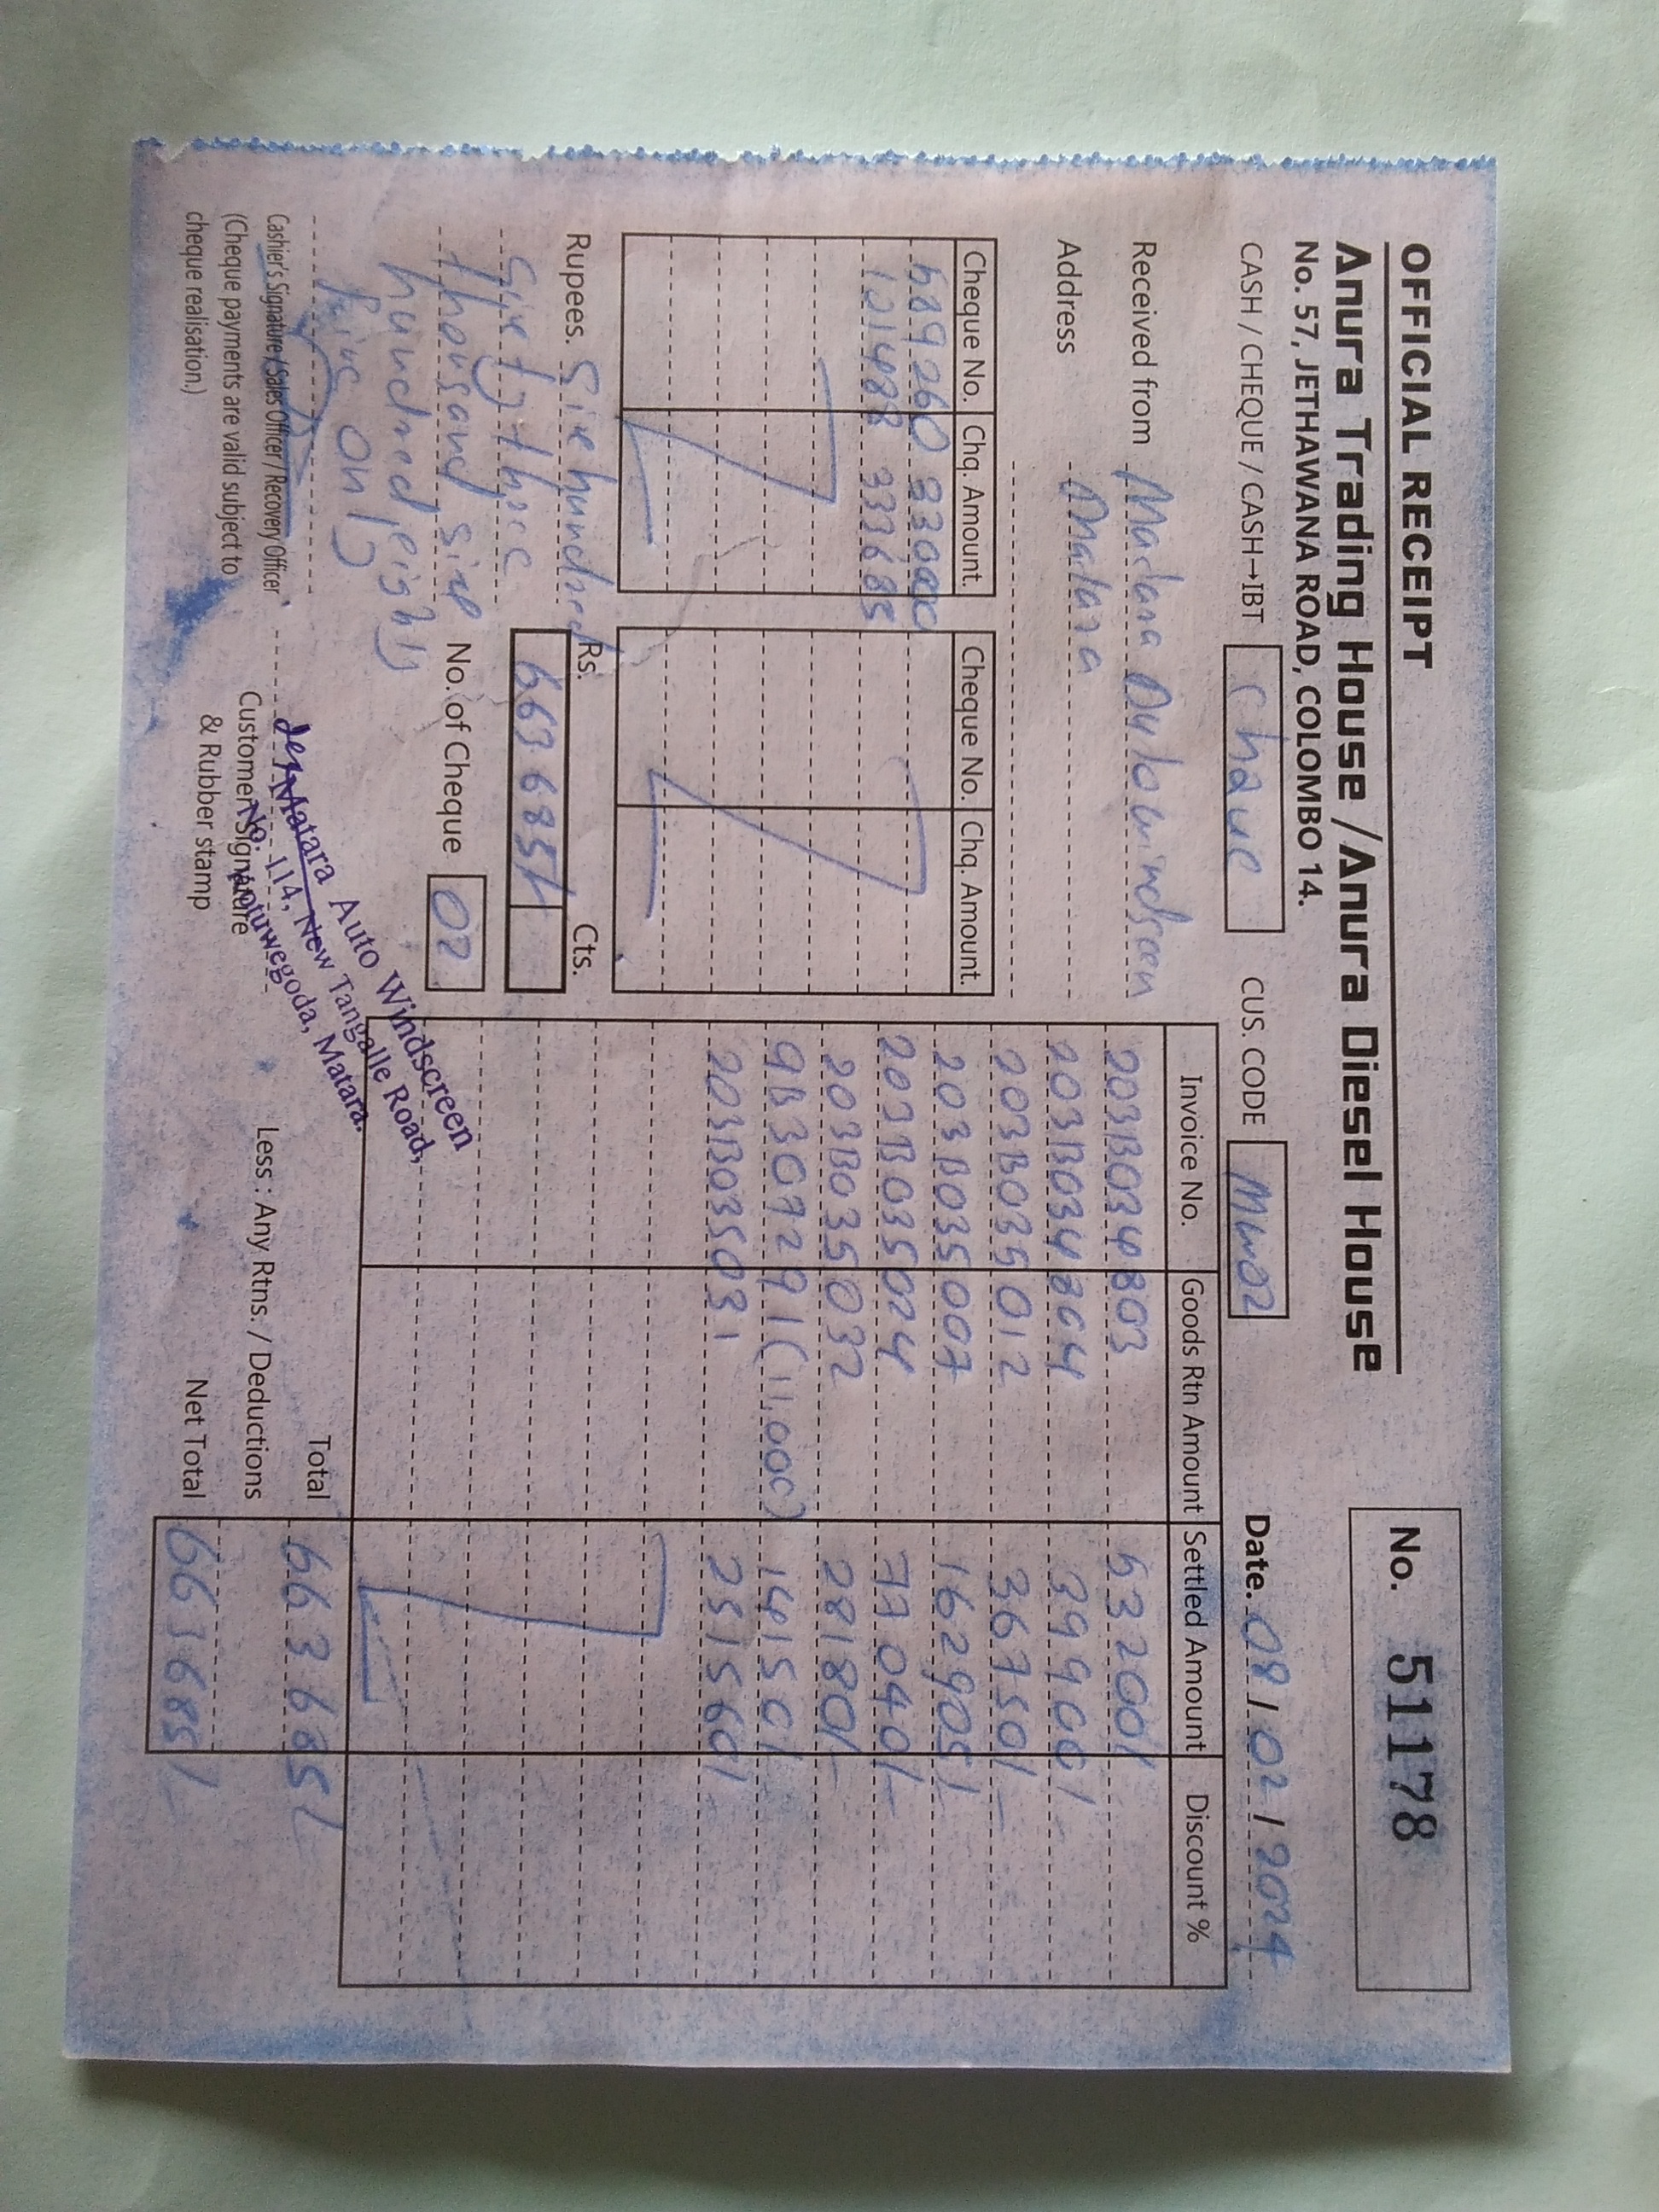 OFFICIAL RECEIPT
No. 51178
Anura Trading House / Anura Diesel House
No. 57, JETHAWANA ROAD, COLOMBO 14.
CASH / CHEQUE / CASH→IBT
CUS. CODE
Date. 08 / 02 / 2024
Received from Matara
Address Matara
Cheque No. Chq. Amount. Cheque No. Chq. Amount.
689260 330000
121488 333685
Invoice No. Goods Rtn Amount Settled Amount Discount %
203B034803 53200/
203B034804 39900/-
203B035012 36750/-
203B035007 162905/
203B035024 73040/-
203B035032 28180/-
9B307291 (11,000) 141550/-
203B035031 251560/
Rupees. Six hundred
sixty three
thousand six
hundred eighty
five only
Rs. Cts.
663685/
No. of Cheque 02
Total 663685/-
Less : Any Rtns. / Deductions
Net Total 663685/-
Cashier's Signature / Sales Officer / Recovery Officer
(Cheque payments are valid subject to
cheque realisation)
Customer Signature
& Rubber stamp
Matara Auto Windscreen
No. 114, New Tangalle Road,
Kotuwegoda, Matara.